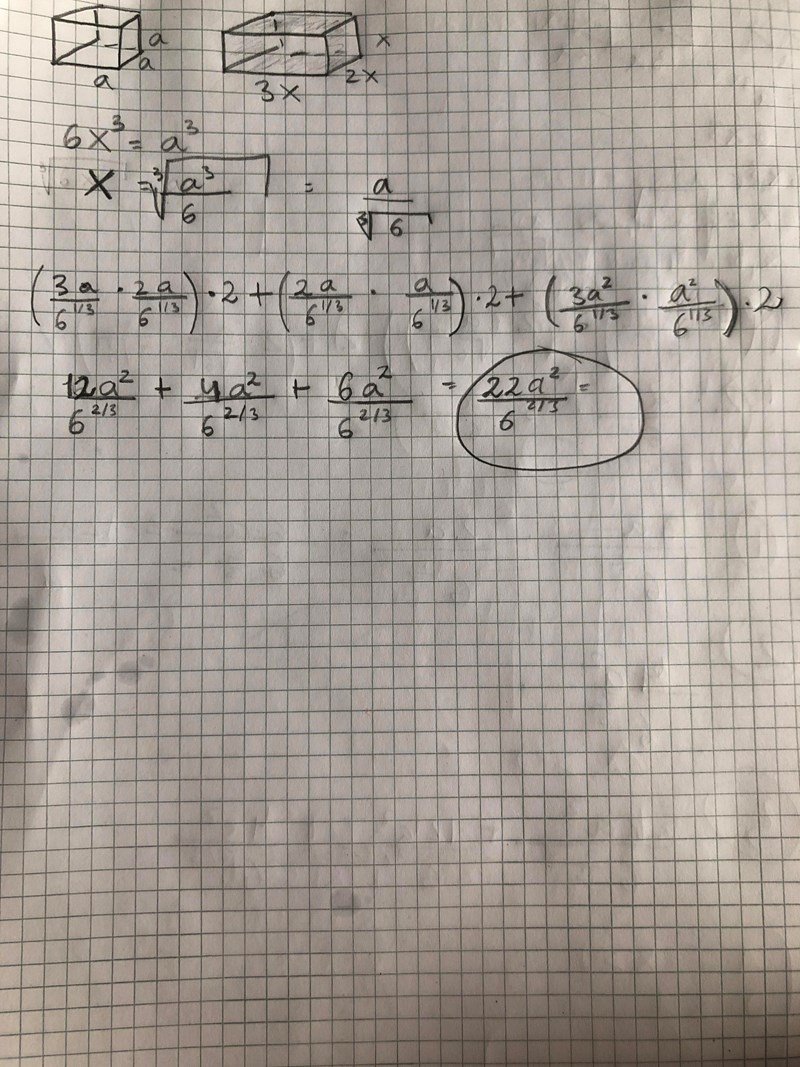 a a a 3x 2x x
6x³ = a³
x = ∛(a³/6) = a/∛6
(3a/6^1/3 · 2a/6^1/3) · 2 + (2a/6^1/3 · a/6^1/3) · 2 + (3a²/6^1/3 · a²/6^1/3) · 2
12a²/6^2/3 + 4a²/6^2/3 + 6a²/6^2/3 = 22a²/6^2/3 =